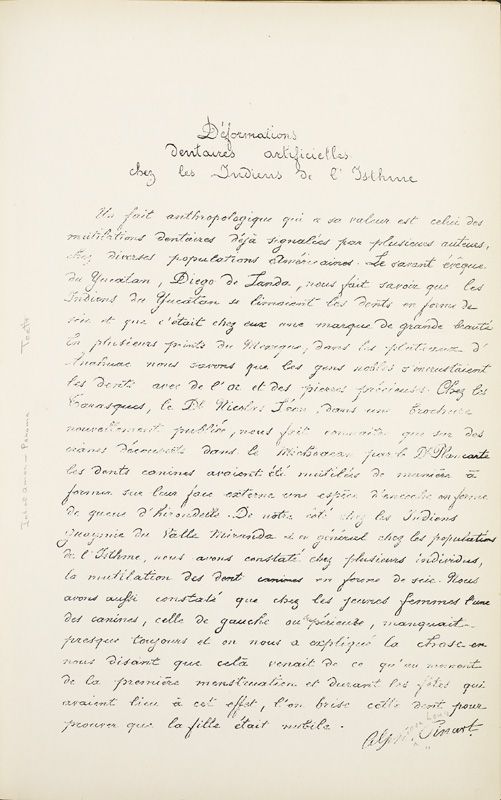 Déformations
dentaires artificielles
chez les Indiens de l'Isthme
Un fait anthropologique qui a sa valeur est celui des
mutilations dentaires déjà signalées par plusieurs auteurs,
chez diverses populations américaines. Le savant évêque
du Yucatan, Diego de Landa, nous fait savoir que les
Indiens du Yucatan se limaient les dents en forme de
scie et que c'était chez eux une marque de grande beauté
En plusieurs points du Mexique, dans les plateaux d'
Anahuac nous savons que les gens nobles s'incrustaient
les dents avec de l'or et des pierres précieuses. Chez les
Tarasques, le Dr Nicolas Léon, dans une brochure
nouvellement publiée, nous fait connaître que sur des
crânes découverts dans le Michoacan par le Dr Plancarte
les dents canines avaient été mutilées de manière à
former sur leur face externe une espèce d'encoche en forme
de queue d'hirondelle. De notre côté chez les Indiens
Guaymie du Valle Miranda et en général chez les populations
de l'Isthme, nous avons constaté chez plusieurs individus,
la mutilation des dent canines en forme de scie. Nous
avons aussi constaté que chez les jeunes femmes l'une
des canines, celle de gauche ou supérieure, manquait
presque toujours et on nous a expliqué la chose en
nous disant que celà venait de ce qu'au moment
de la première menstruation et durant les fêtes qui
avaient lieu à cet effet, l'on brise cette dent pour
prouver que la fille était nubile.
Alph. Pinart.
Teeth